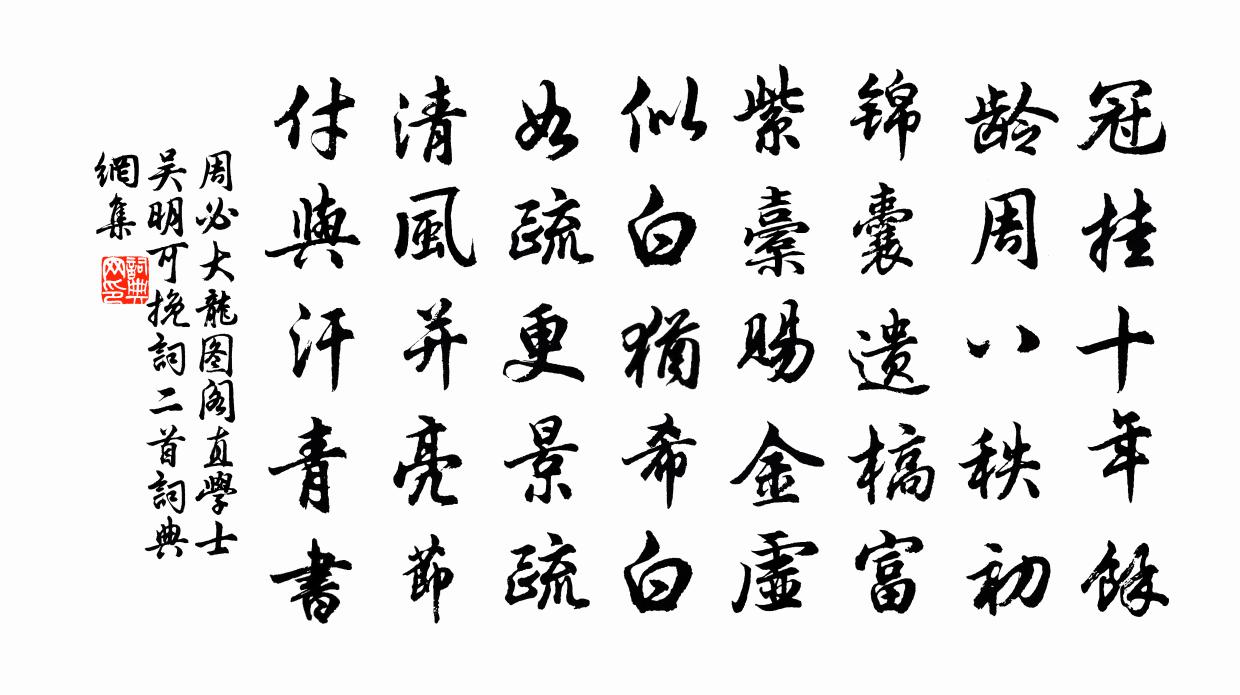 冠挂十年餘
龄周八秩初
锦囊遗槁富
紫橐赐金虚
似白猶希白
如疏更景疏
清風并亮節
付與汗青書
周必大龍图阁直學士
吴明可挽詞二首詞典
網集
詞典
网印